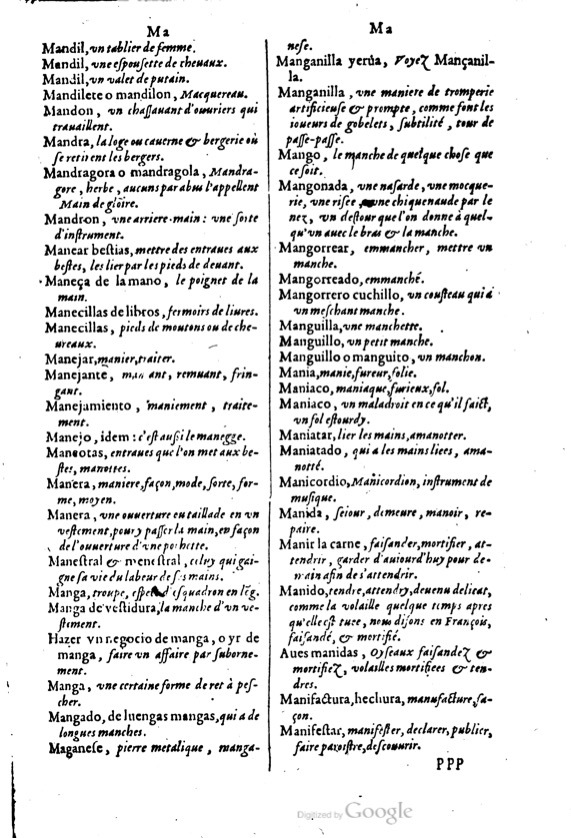 Ma
Mandil, vn tablier de femme.
Mandil, vne espoussette de cheuaux.
Mandil, vn valet de putain.
Mandilete o mandilon, Macquereau.
Mandon, vn chassauant d'ouuriers qui
trauaillent.
Mandra, la loge ou cauerne & bergerie où
se retirent les bergers.
Mandragora o mandragola, Mandra-
gore, herbe, aucuns par abus l'appellent
Main de gloire.
Mandron, vne arriere-main: vne sorte
d'instrument.
Manear bestias, mettre des entraues aux
bestes, les lier par les pieds de deuant.
Maneça de la mano, le poignet de la
main.
Manecillas de libros, fermoirs de liures.
Manecillas, pieds de moutons ou de che-
ureaux.
Manejar, manier, traiter.
Manejante, maniant, remuant, frin-
gant.
Manejamiento, maniement, traite-
ment.
Manejo, idem: c'est aussi le manegge.
Maneotas, entraues que l'on met aux be-
stes, manottes.
Manera, maniere, façon, mode, sorte, for-
me, moyen.
Manera, vne ouuerture ou taillade en vn
vestement, pour y passer la main, en façon
de l'ouuerture d'vne pochette.
Manestral & menestral, celuy qui gai-
gne sa vie du labeur de ses mains.
Manga, troupe, esquadron en lõg.
Manga de vestidura, la manche d'vn ve-
stiment.
Hazer vn negocio de manga, o yr de
manga, faire vn affaire par suborne-
ment.
Manga, vne certaine forme de ret à pes-
cher.
Mangado, de luengas mangas, qui a de
longues manches.
Maganese, pierre metalique, manga-
Ma
nese.
Manganilla yerua, Voyez Mançanil-
la.
Manganilla, vne maniere de tromperie
artificieuse & prompte, comme font les
ioueurs de gobelets, subtilité, tour de
passe-passe.
Mango, le manche de quelque chose que
ce soit.
Mangonada, vne nasarde, vne mocque-
rie, vne risee, vne chiquenaude par le
nez, vn destour que l'on donne à quel-
qu'vn auec le bras & la manche.
Mangorrear, emmancher, mettre vn
manche.
Mangorreado, emmanché.
Mangorrero cuchillo, vn cousteau qui a
vn meschant manche.
Manguilla, vne manchette.
Manguillo, vn petit manche.
Manguillo o manguito, vn manchon.
Mania, manie, fureur, folie.
Maniaco, maniaque, furieux, fol.
Maniaco, vn maladroit en ce qu'il faict,
vn fol estourdy.
Maniatar, lier les mains, amanotter.
Maniatado, qui a les mains liees, ama-
notté.
Manicordio, Manicordion, instrument de
musique.
Manida, seiour, demeure, manoir, re-
paire.
Manir la carne, faisander, mortifier, at-
tendrir, garder d'auiourd'huy pour de-
main afin de s'attendrir.
Manido, tendre, attendry, deuenu delicat,
comme la volaille quelque temps apres
qu'elle est tuee, nous disons en François,
faisandé, & mortifié.
Aues manidas, Oyseaux faisandez &
mortifiez, volailles mortifiees & ten-
dres.
Manifactura, hechura, manufacture, fa-
çon.
Manifestar, manifester, declarer, publier,
faire paroistre, descouurir.
PPP
Digitized by Google